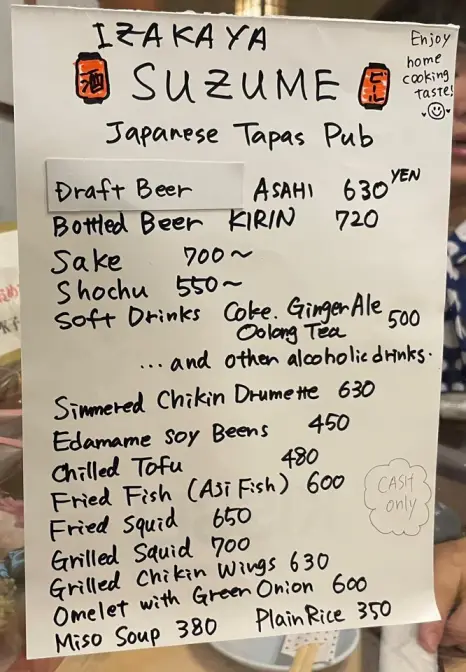 IZAKAYA
Enjoy
home
cooking
taste!
酒
SUZUME
ビール
Japanese Tapas Pub
Draft Beer ASAHI 630 YEN
Bottled Beer KIRIN 720
Sake 700~
Shochu 550~
Soft Drinks Coke. Ginger Ale
Oolong Tea 500
... and other alcoholic drinks.
Simmered Chikin Drumette 630
Edamame Soy Beens 450
Chilled Tofu 480
Fried Fish (Aji Fish) 600
Fried Squid 650
Grilled Squid 700
Grilled Chikin Wings 630
Omelet with Green Onion 600
Miso Soup 380 Plain Rice 350
CASH
only